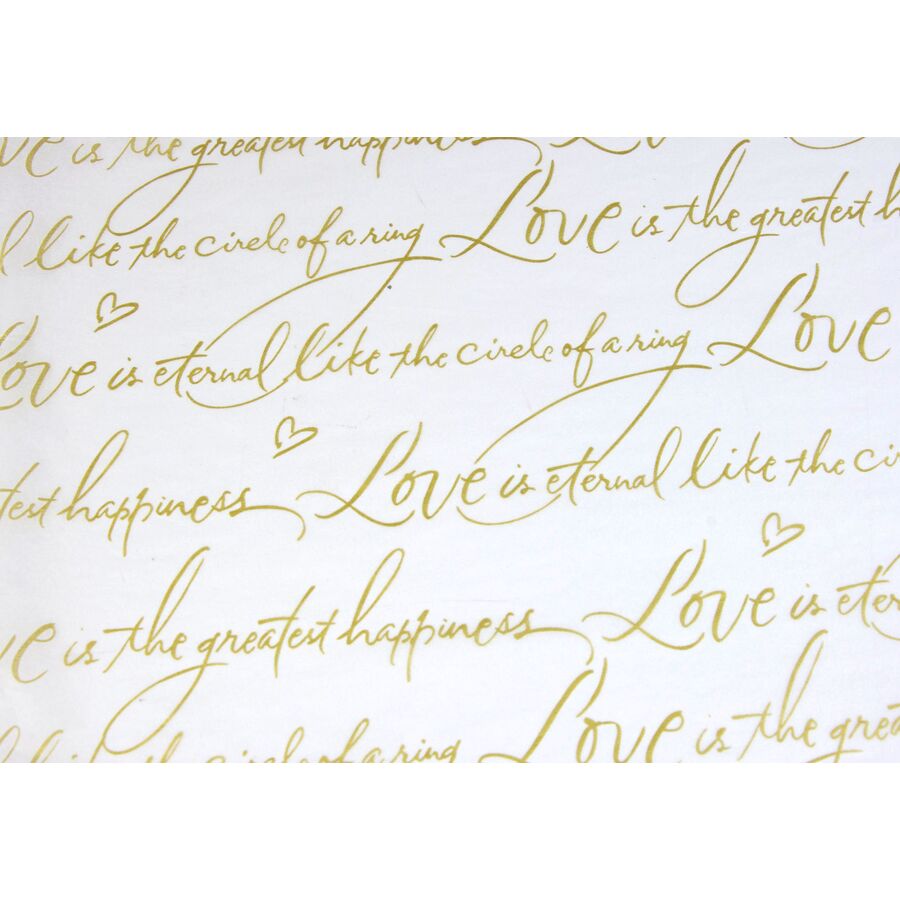 is the greatest happiness
like the circle of a ring Love is the greatest
Love is eternal like the circle of a ring Love
happiness Love is eternal like the
is the greatest happiness Love is
circle of a ring Love is the